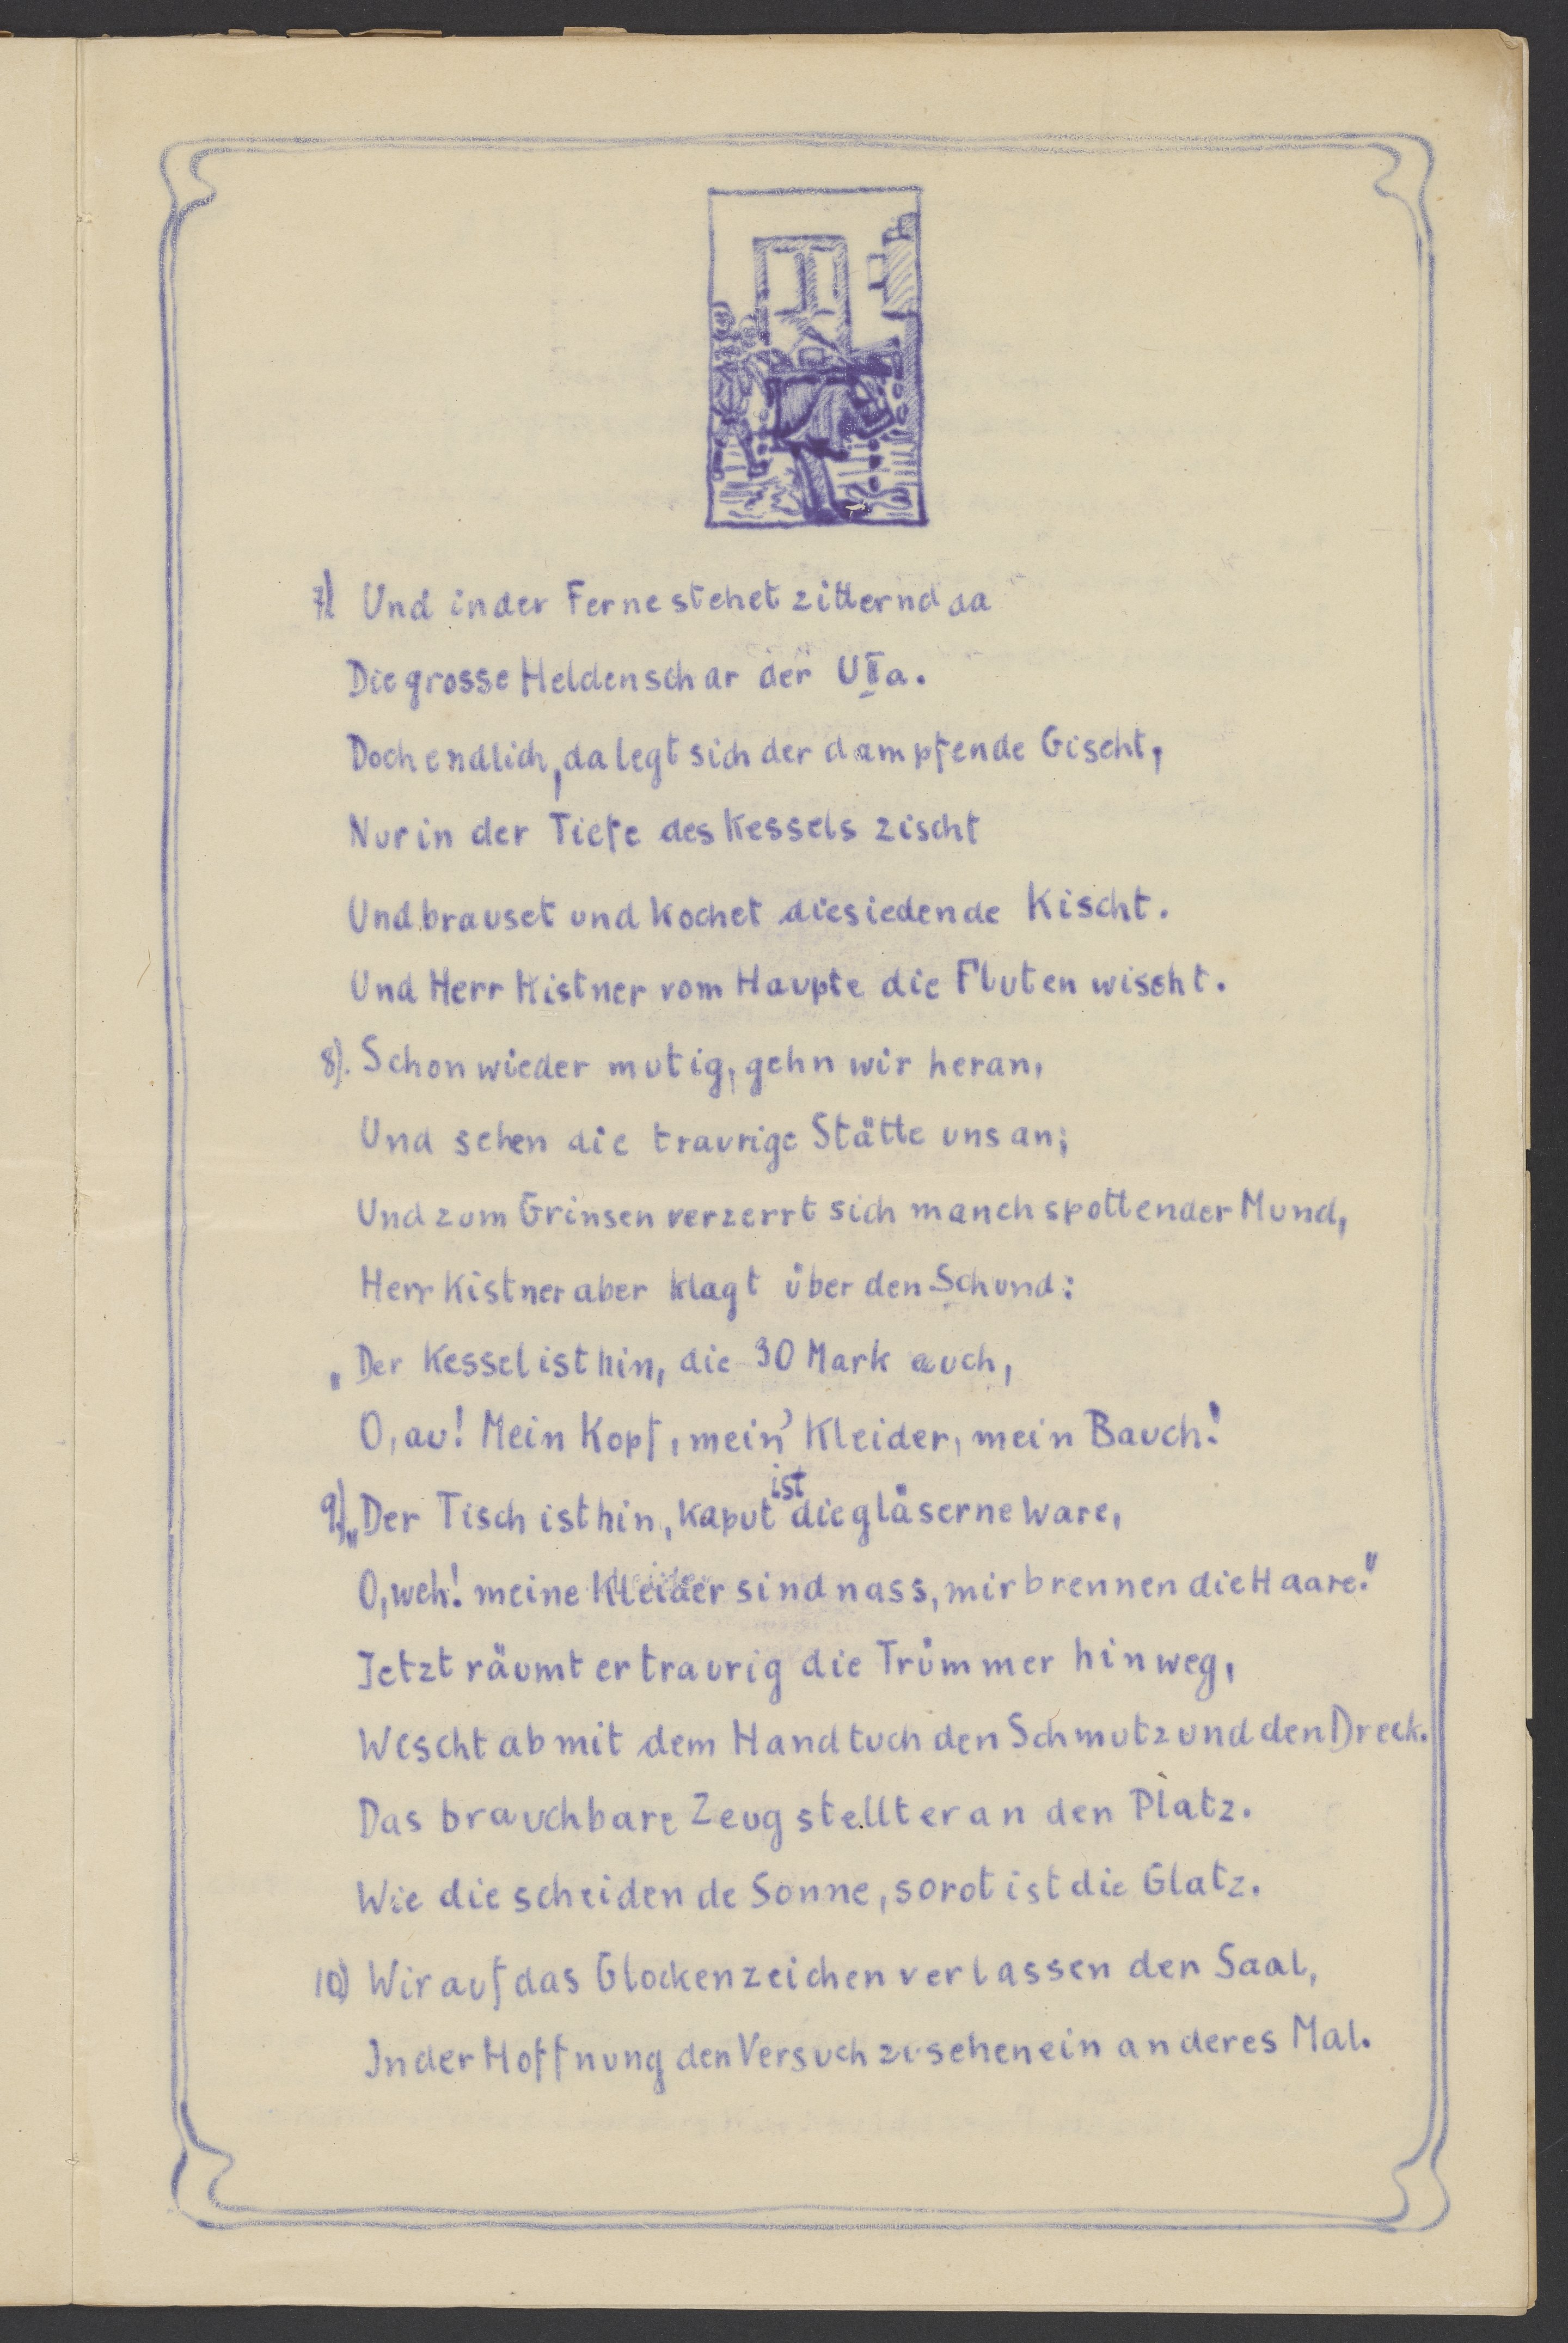 7) Und in der Ferne stehet zitternd da
Die grosse Heldenschar der UIIa.
Doch endlich, da legt sich der dampfende Gischt,
Nur in der Tiefe des Kessels zischt
Und brauset und kochet die siedende Kischt.
Und Herr Kistner vom Haupte die Fluten wischt.
8). Schon wieder mutig, gehn wir heran,
Und sehen die traurige Stätte uns an;
Und zum Grinsen verzerrt sich manch spottender Mund,
Herr Kistner aber klagt über den Schund:
„Der Kessel ist hin, die 30 Mark auch,
O, au! Mein Kopf, mein' Kleider, mein Bauch!
9.) „Der Tisch ist hin, kaput ist die gläserne Ware,
O, weh! meine Kleider sind nass, mir brennen die Haare."
Jetzt räumt er traurig die Trümmer hinweg,
Wischt ab mit dem Handtuch den Schmutz und den Dreck.
Das brauchbare Zeug stellt er an den Platz.
Wie die scheidende Sonne, so rot ist die Glatz.
10) Wir auf das Glockenzeichen verlassen den Saal,
In der Hoffnung den Versuch zu sehen ein anderes Mal.